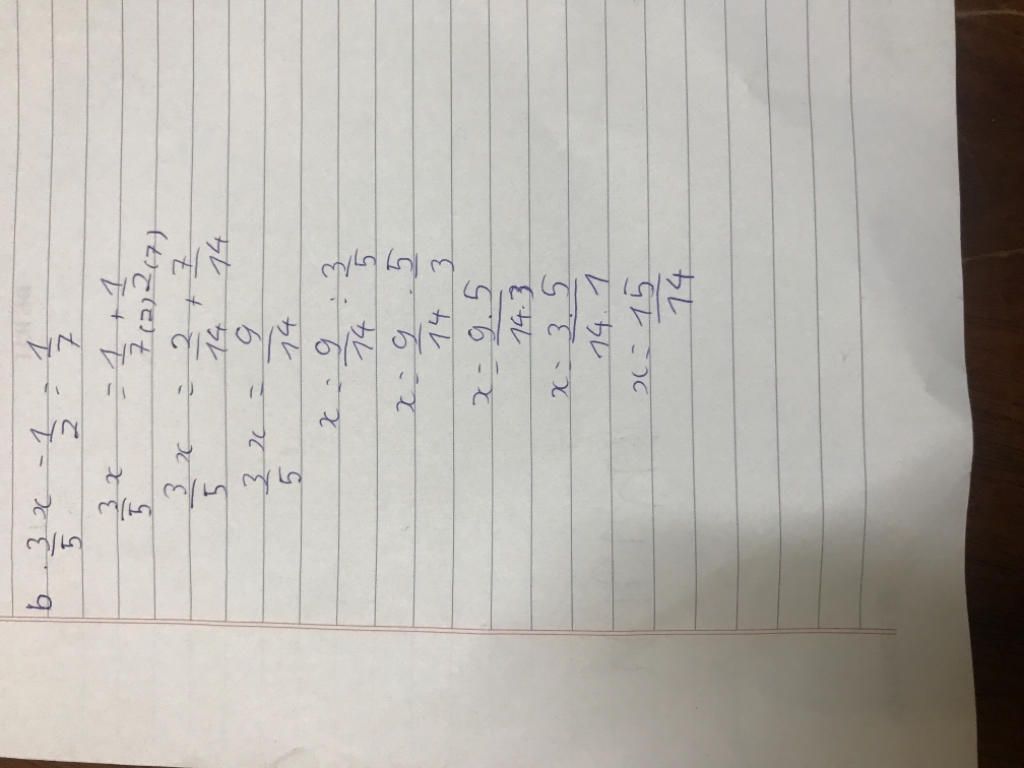 b. 3/5 x - 1/2 = 1/7
3/5 x = 1/7(2) + 1/2(7)
3/5 x = 2/14 + 7/14
3/5 x = 9/14
x = 9/14 : 3/5
x = 9/14 . 5/3
x = 9.5/14.3
x = 3.5/14.1
x = 15/14